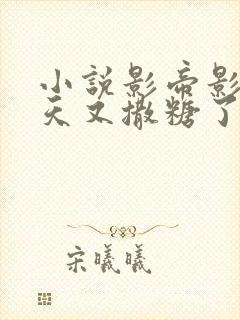 小說影帝影
天又撒糖了
宋曦曦